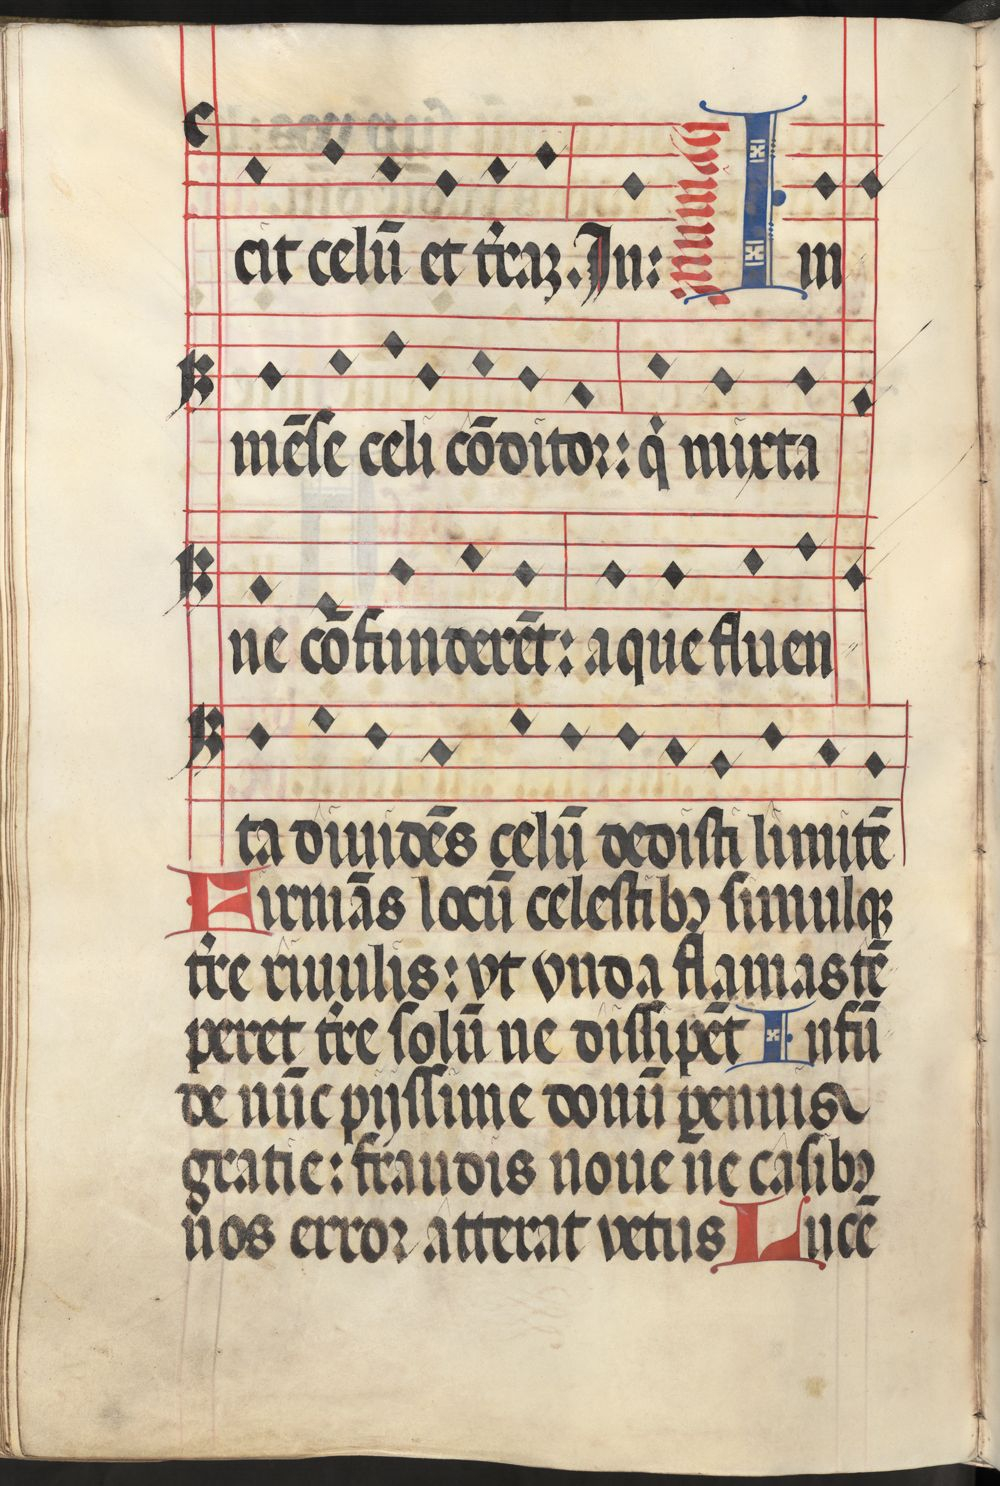 cit celū et t̄raꝫ. In: hymnus I m
mēse celi cōditor: q̇ mixta
ne cōfunderēt: aque fluen
ta diuidēs celū dedisti limitē
Firmās locū celestibꝰ simulqꝫ
t̄re riuulis: vt vnda flamas tē
peret t̄re solū ne dissipēt Infū
de nūc pijssime donū ꝑennis
gratie: fraudis noue ne casibꝰ
nos error atterat vetus Lucē